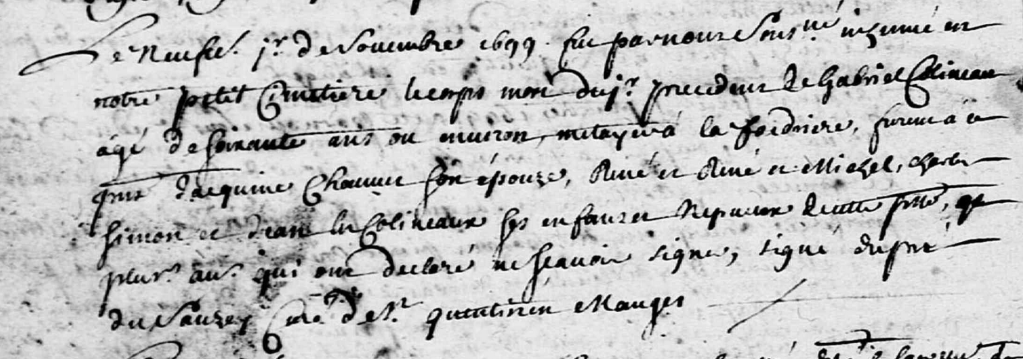 Le neufie. jr. de novembre 1699 fut par nous souss.né inhumé en
notre petit cimetiere le corps mort du jr. precedent de Gabriel Colineau
âgé de soixante ans ou environ, metayer à la , furent à ce
pnts Jacquine Chauvet son épouze, René et René et Michel, Charle
Simon et Jean les Colineaux ses enfans et nepveux de cette psse, et
plusrs. aus. qui ont declaré ne sçavoir signer, signé
du curé de St. quentin en Mauges